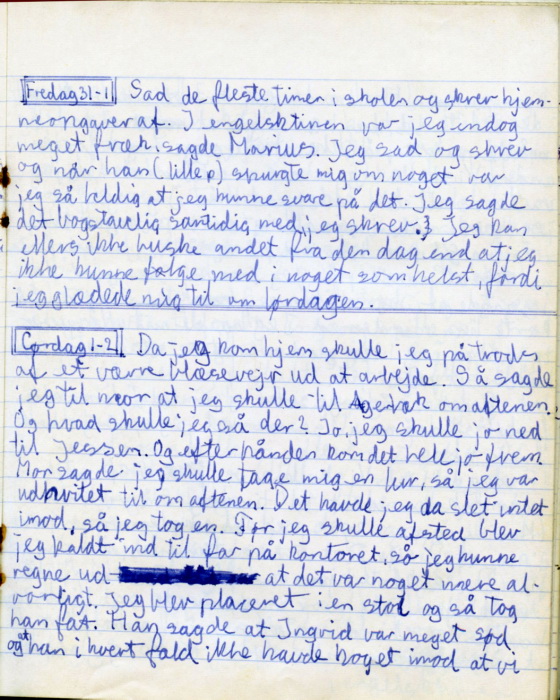 Fredag 31-1 Sad de fleste timer i skolen og skrev hjem-
meopgaver af. I engelsktimen var jeg endog
meget fræk, sagde Marius. Jeg sad og skrev
og når han (lille p) spurgte mig om noget var
jeg så heldig at jeg kunne svare på det. Jeg sagde
det bogstavelig samtidig med, jeg skrev. Jeg kan
ellers ikke huske andet fra den dag end at jeg
ikke kunne følge med i noget somhelst, fordi
jeg glædede mig til om lørdagen.
Lørdag 1-2 Da jeg kom hjem skulle jeg på trods
af et værre blæsevejr ud at arbejde. Så sagde
jeg til mor at jeg skulle til Agerbæk om aftenen.
Og hvad skulle jeg så der? Jo, jeg skulle jo ned
til Jessen. Og efterhånden kom det hele jo frem
Mor sagde jeg skulle tage mig en lur, så jeg var
udhvilet til om aftenen. Det havde jeg da slet intet
imod, så jeg tog en. Før jeg skulle afsted blev
jeg kaldt ind til far på kontoret, så jeg kunne
regne ud at det var noget mere al-
vorligt. Jeg blev placeret i en stol og så tog
han fat. Han sagde at Ingrid var meget sød
og at han i hvert fald ikke havde noget imod at vi